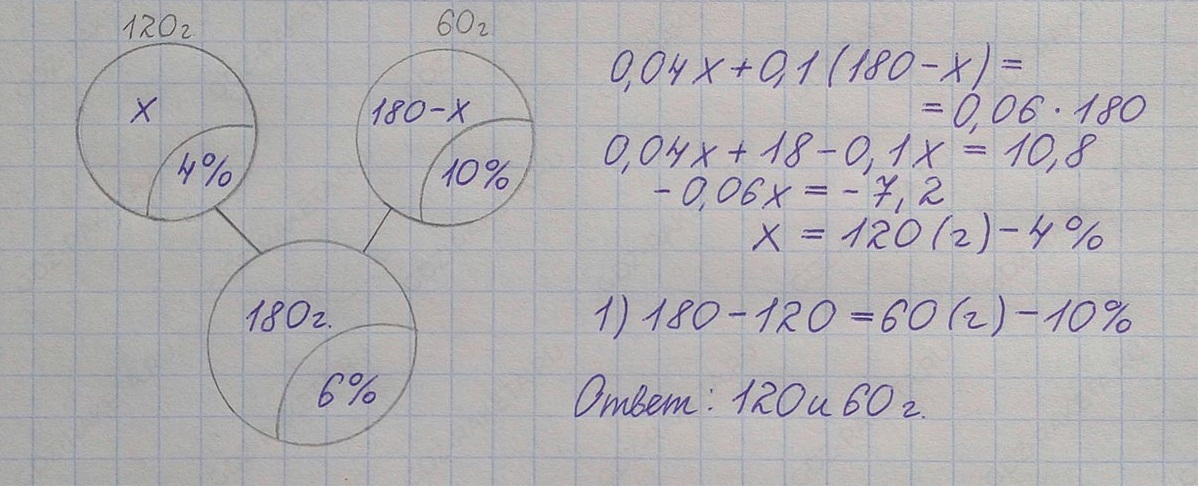 120г
60г
x
180-x
4%
10%
180г.
6%
0,04x+0,1(180-x)=
=0,06·180
0,04x+18-0,1x=10,8
-0,06x=-7,2
x=120(г)-4%
1) 180-120=60(г)-10%
Ответ: 120 и 60г.